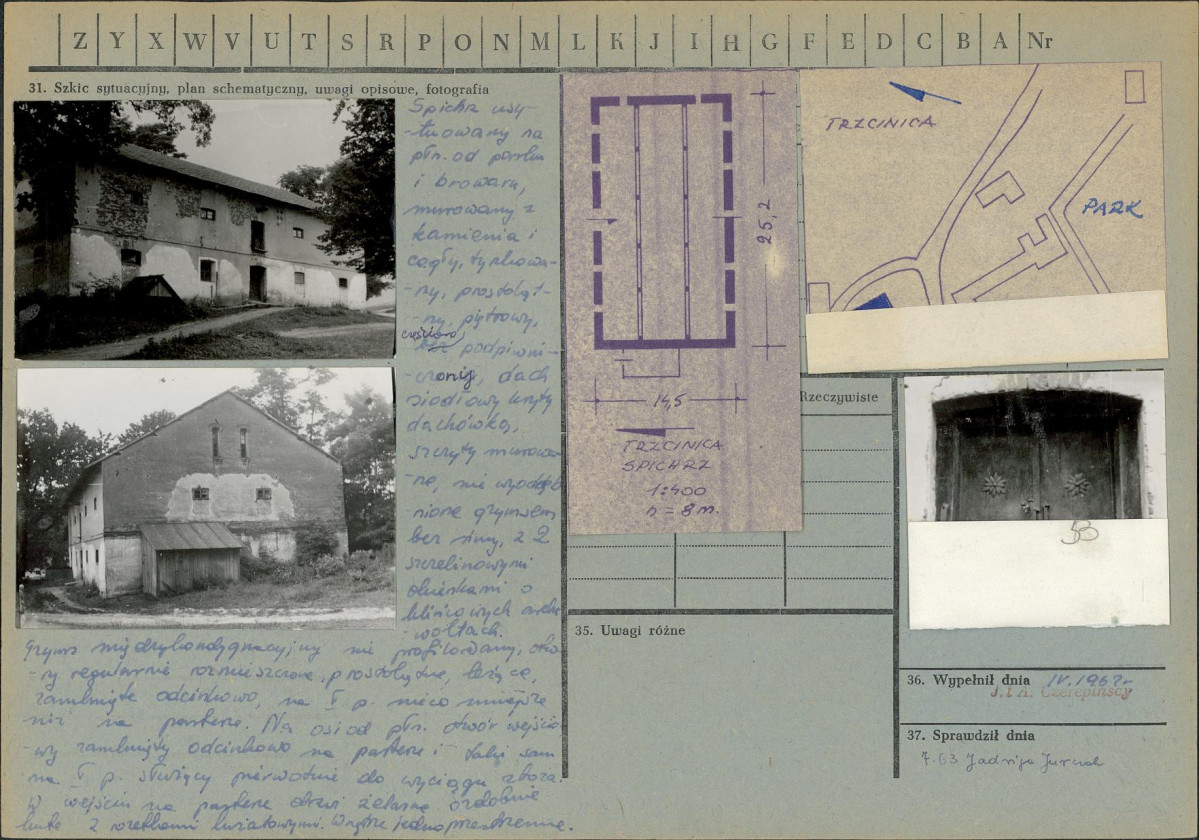 Z Y X W V U T S R P O N M L K J I H G F E D C B A Nr
31. Szkic sytuacyjny, plan schematyczny, uwagi opisowe, fotografia
Spichrz usy-
-tuowany na
płn. od parku
i browaru,
murowany z
kamienia i
cegły, tynkowa-
-ny, prostokąt-
-ny, piętrowy,
częściowo
podpiwni-
-czony, dach
siodłowy kryty
dachówką,
szczyty murowa-
-ne, nie wyodręb-
nione gzymsem
bez simy, z 2
szczelinowymi
okienkami o
klińcowych archi-
-woltach.
Gzyms międzykondygnacyjny nie profilowany, otwo-
-ry regularnie rozmieszczone, prostokątne, leżące,
zamknięte odcinkowo, na I p. nieco mniejsze
niż na parterze. Na osi od płn. otwór wejścio-
-wy zamknięty odcinkowo na parterze i taki sam
na I p. służący pierwotnie do wyciągu zboża.
W wejściu na parterze drzwi żelazne ozdobnie
kute z rozetkami kwiatowymi. Wnętrze jednoprzestrzenne.
25,2
14,5
TRZCINICA
SPICHRZ
1:400
h = 8 m.
TRZCINICA
PARK
Rzeczywiste
53
35. Uwagi różne
36. Wypełnił dnia IV. 1962 r.
J. i A. Czerepińscy
37. Sprawdził dnia
7.63 Jadwiga